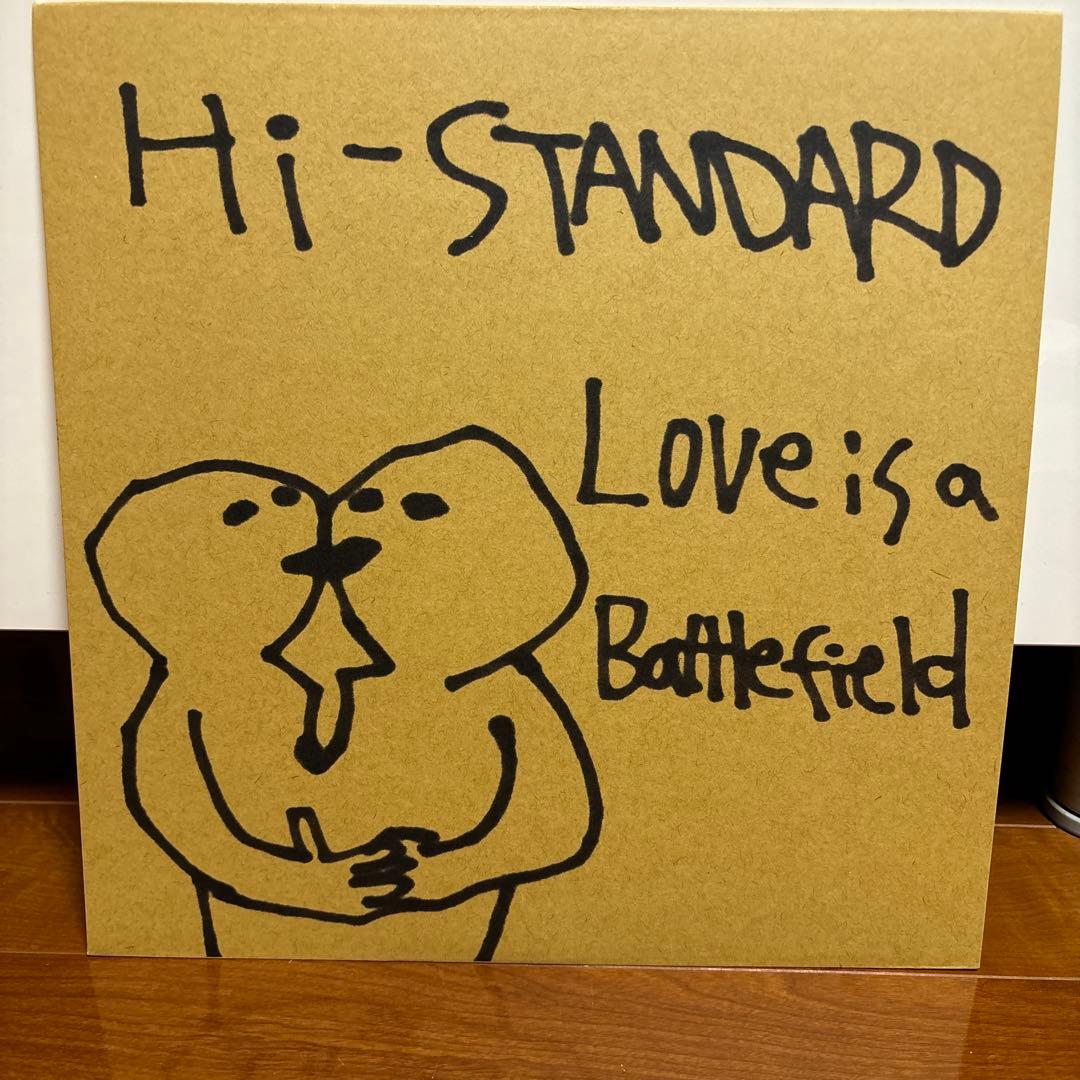 Hi-STANDARD
Love is a
Battlefield